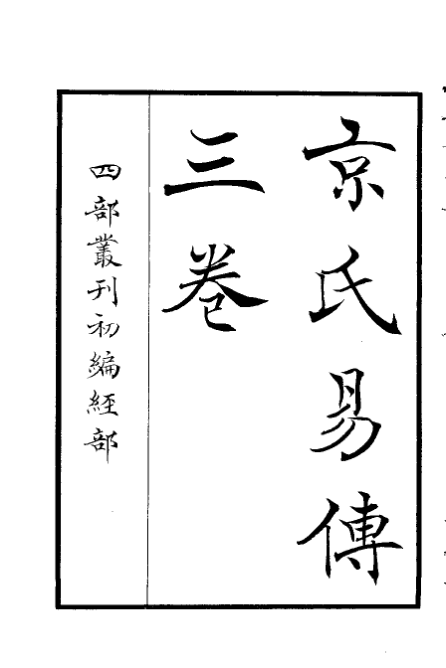 京氏易傳
三卷
四部叢刊初編經部